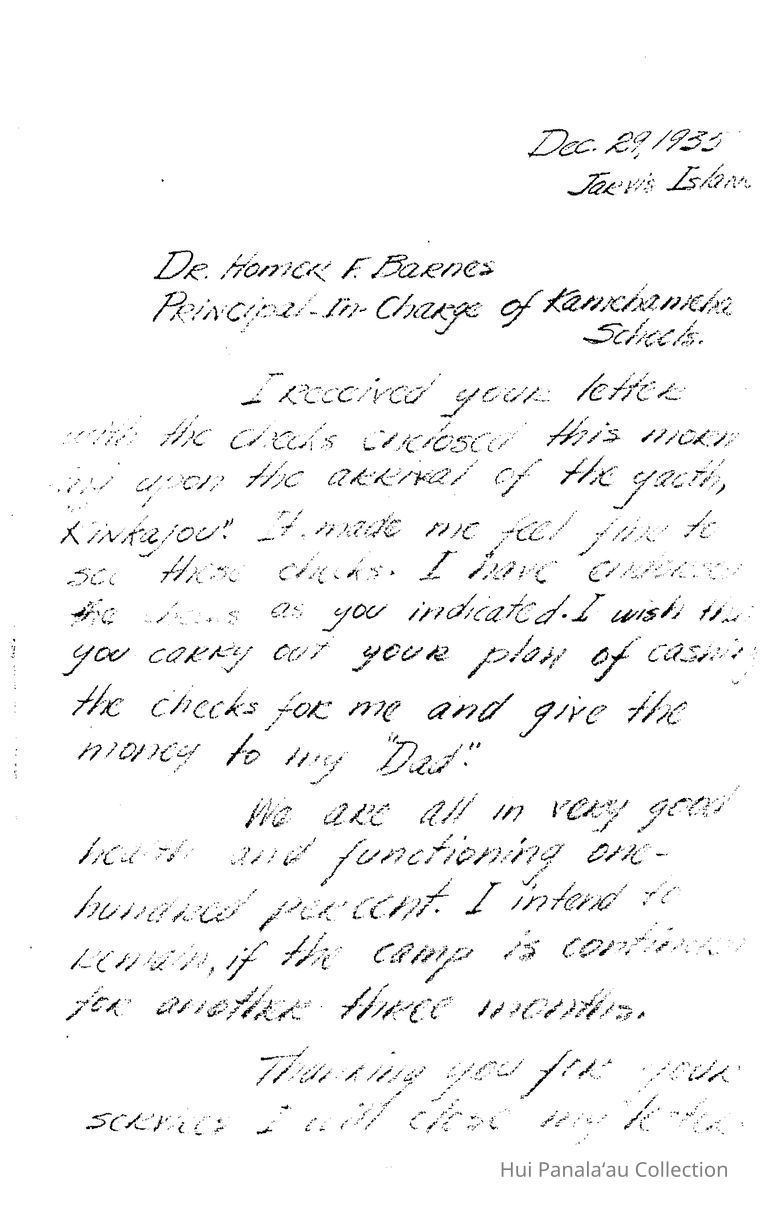 Dec. 29, 1935
Jarvis Islan
Dr. Homer F. Barnes
Principal-In-Charge of Kamehameha
Schools.
I received your letter
with the checks enclosed this morn
ing upon the arrival of the yacth,
Kinkajou". It made me feel fine to
see these checks. I have endorsed
the checks as you indicated. I wish that
you carry out your plan of cashing
the checks for me and give the
money to my "Dad".
We are all in very good
health and functioning one-
hundred per cent. I intend to
remain, if the camp is continued
for another three months.
Thanking you for your
services I will close my letter
Hui Panalaʻau Collection